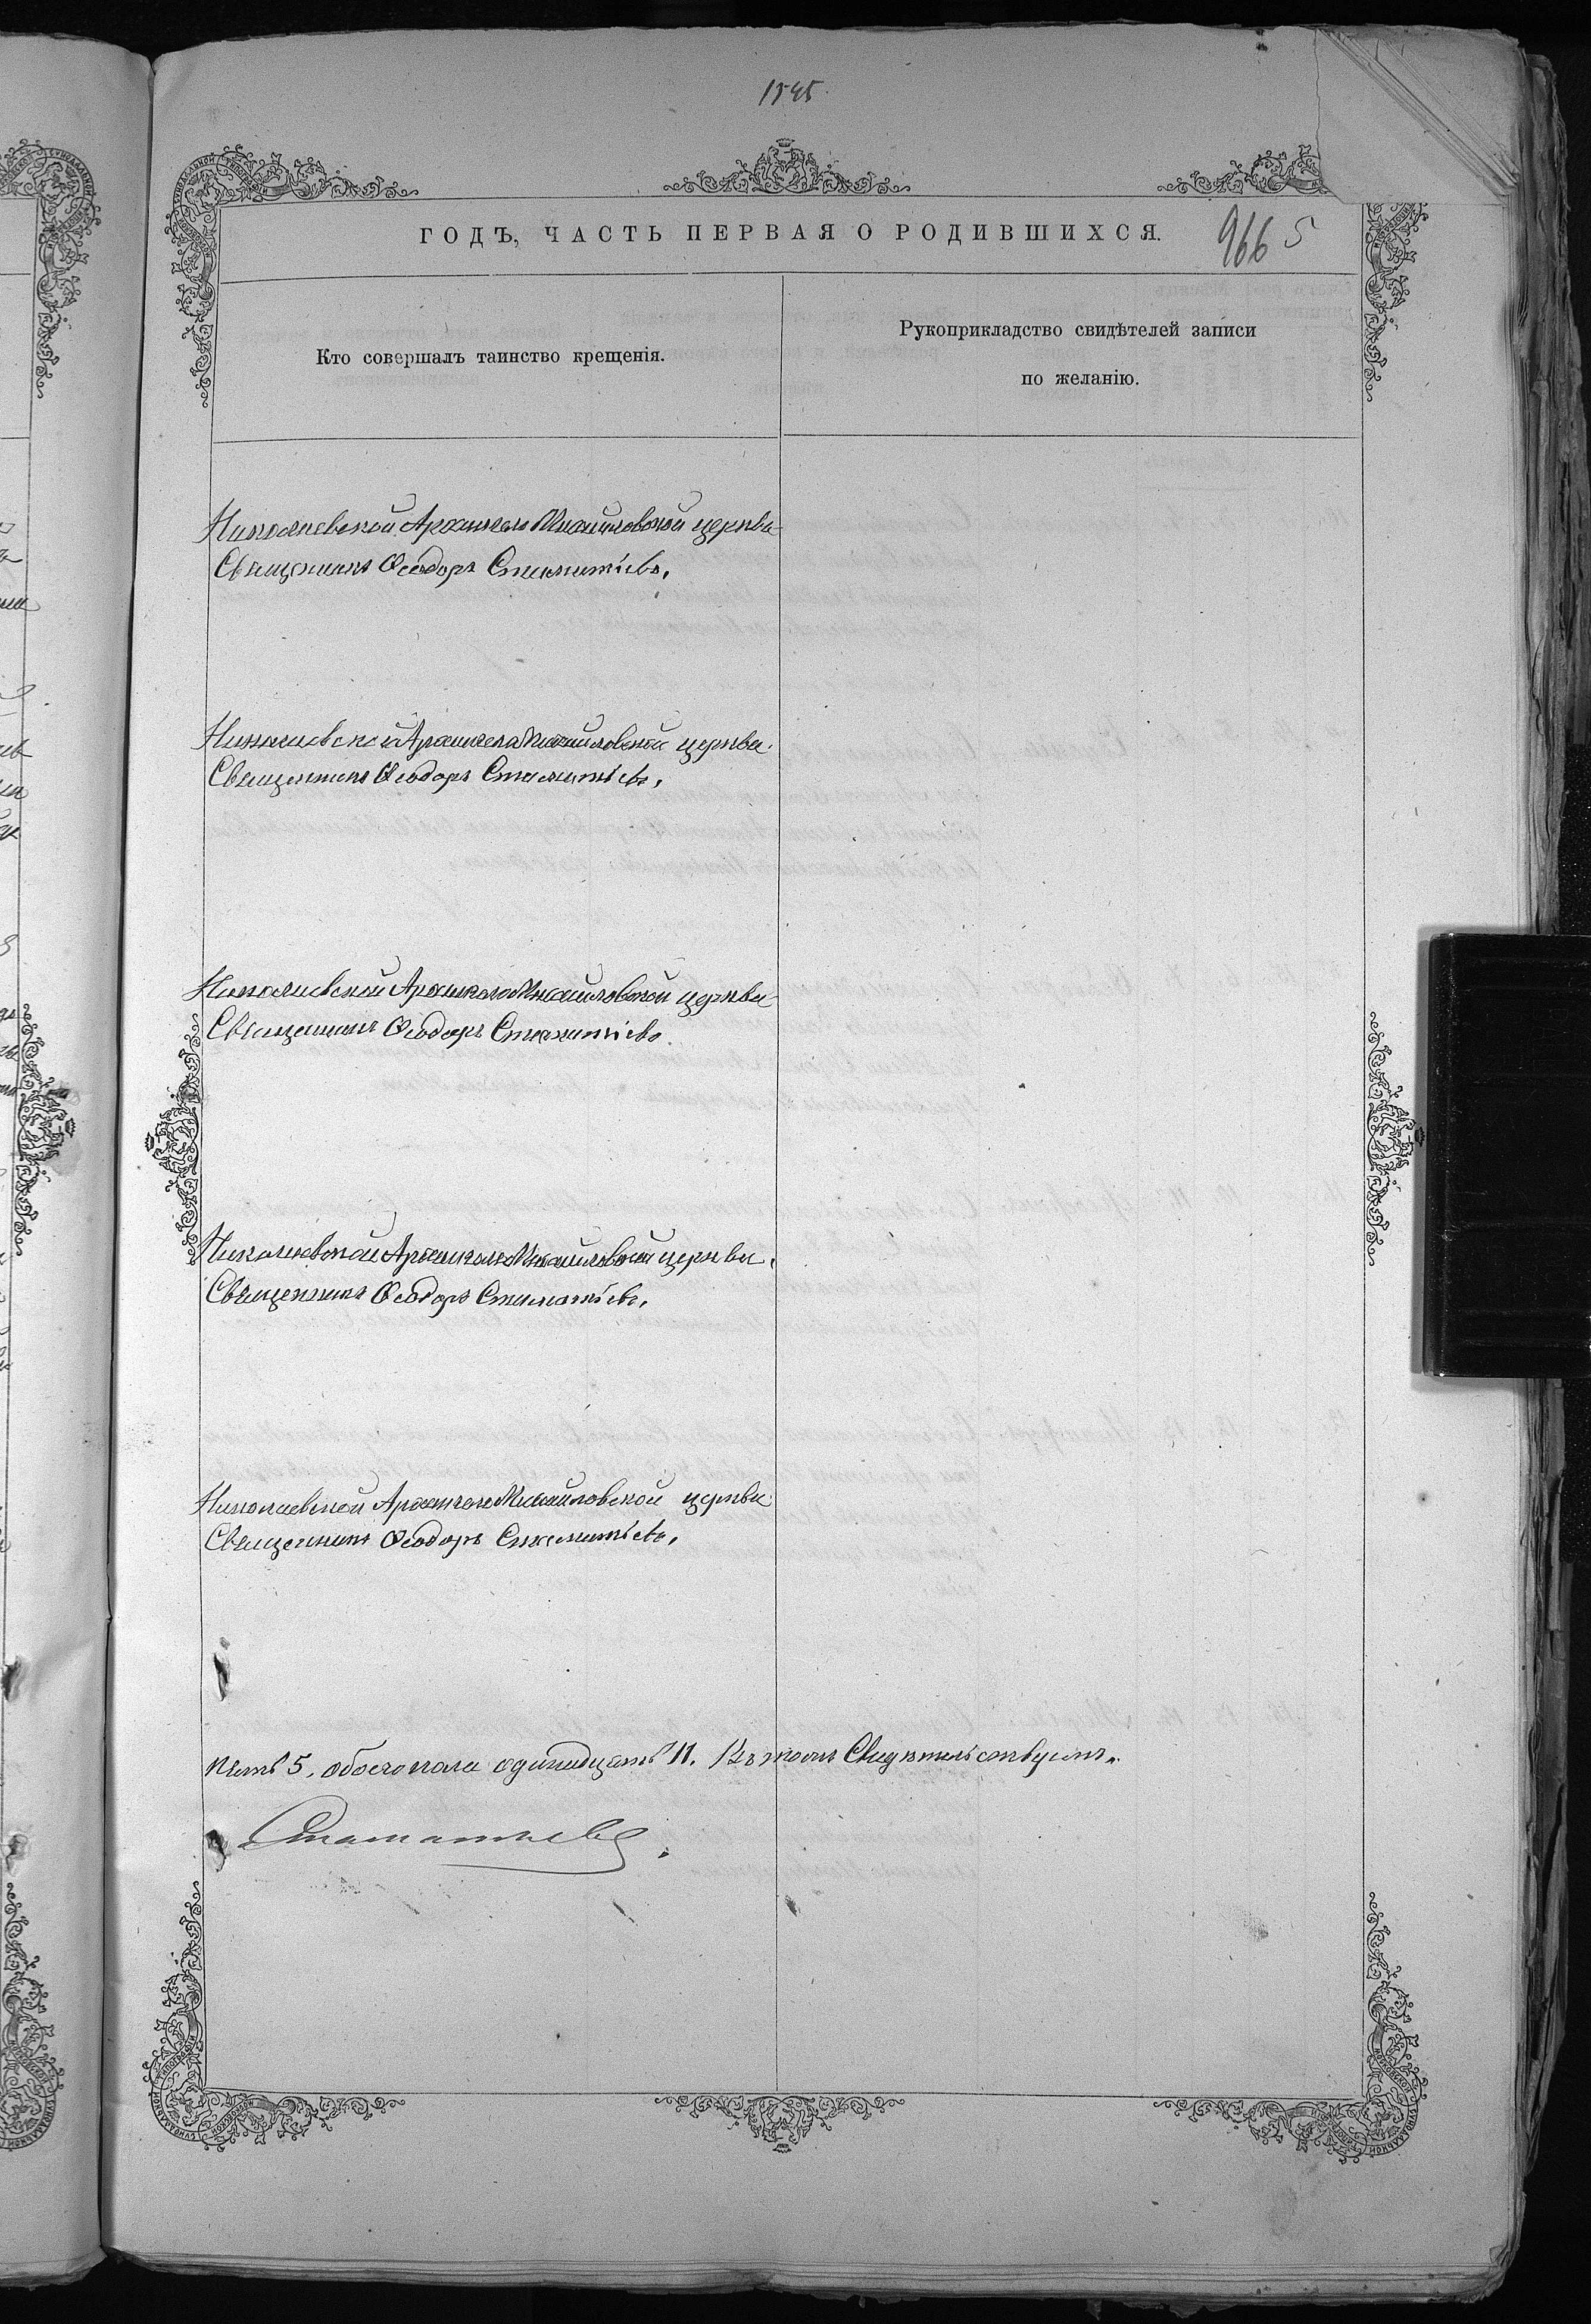 1545
ГОДЪ, ЧАСТЬ ПЕРВАЯ О РОДИВШИХСЯ.
966 5
Кто совершалъ таинство крещенія.
Рукоприкладство свидѣтелей записи
по желанію.
Николаевской Архангело Михайловской церкви
Священникъ Ѳеодоръ Стаматіевъ.
Николаевской Архангело Михайловской церкви
Священникъ Ѳеодоръ Стаматіевъ.
Николаевской Архангело Михайловской церкви
Священникъ Ѳеодоръ Стаматіевъ.
Николаевской Архангело Михайловской церкви.
Священникъ Ѳеодоръ Стаматіевъ.
Николаевской Архангело Михайловской церкви
Священникъ Ѳеодоръ Стаматіевъ.
пять 5. обоего пола одинадцать 11. Въ томъ Свидѣтельствуемъ.
Стаматиевъ.